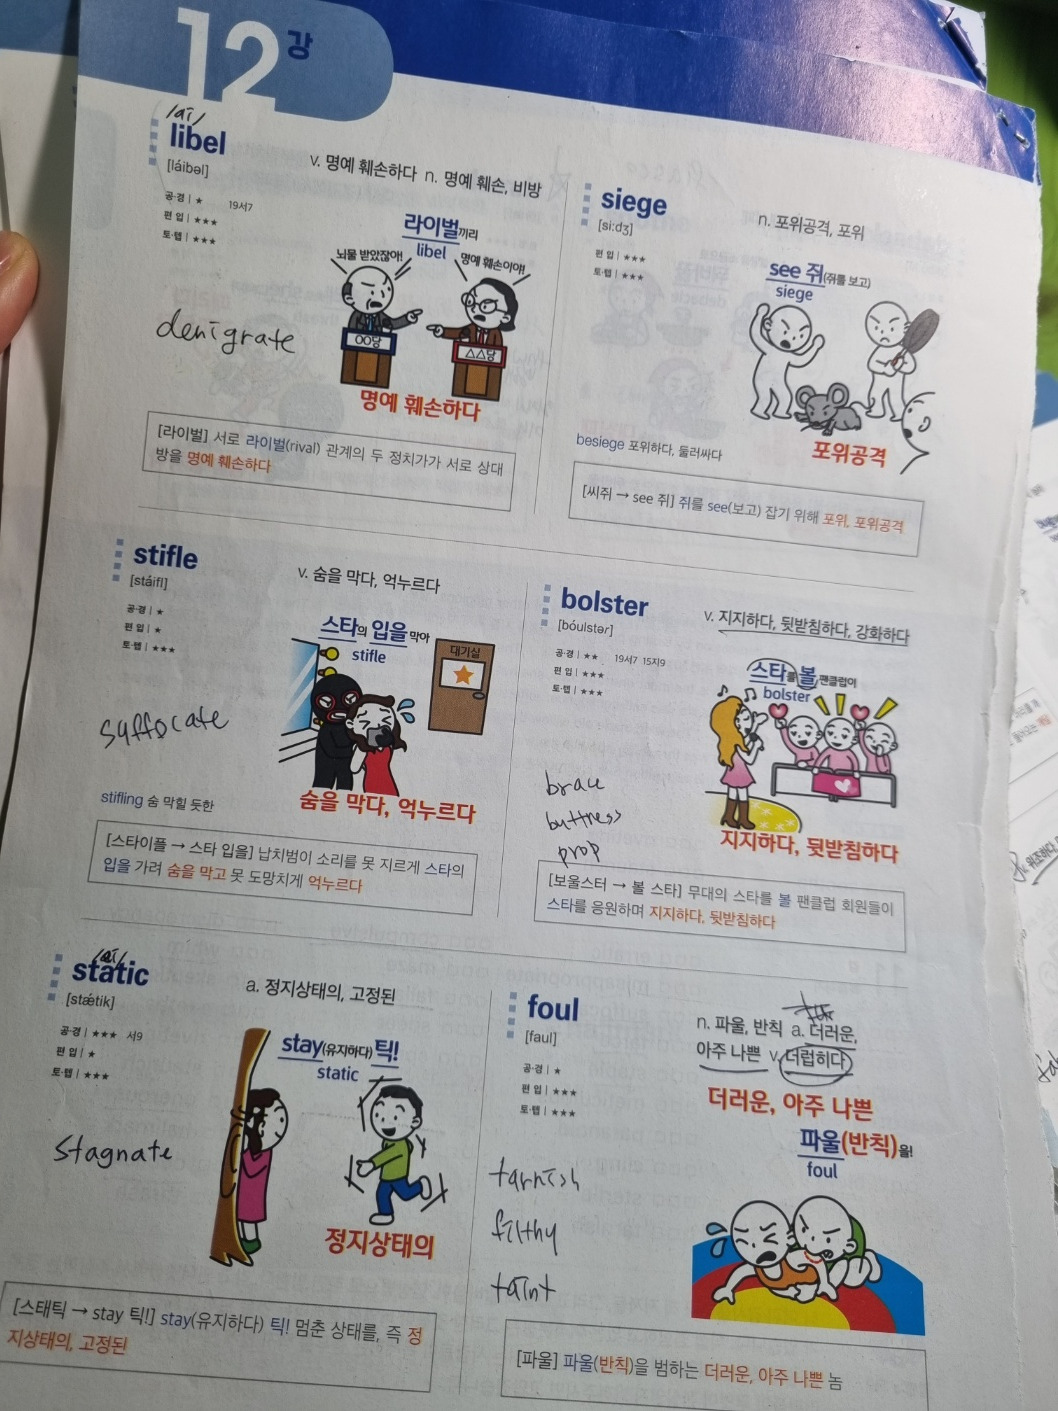 12강
/aī/
libel
[láibəl]
공·경 | ★ 19서7
편 입 | ★★★
토·텝 | ★★★
v. 명예 훼손하다 n. 명예 훼손, 비방
라이벌끼리
libel
뇌물 받았잖아!
명예 훼손이야!
OO당
△△당
denigrate
명예 훼손하다
[라이벌] 서로 라이벌(rival) 관계의 두 정치가가 서로 상대
방을 명예 훼손하다
siege
[si:dʒ]
편 입 | ★★★
토·텝 | ★★★
n. 포위공격, 포위
see 쥐(쥐를 보고)
siege
besiege 포위하다, 둘러싸다
포위공격
[씨쥐 → see 쥐] 쥐를 see(보고) 잡기 위해 포위, 포위공격
stifle
[stáifl]
공·경 | ★
편 입 | ★
토·텝 | ★★★
v. 숨을 막다, 억누르다
스타의 입을 막아
stifle
대기실
suffocate
stifling 숨 막힐 듯한
숨을 막다, 억누르다
[스타이플 → 스타 입을] 납치범이 소리를 못 지르게 스타의
입을 가려 숨을 막고 못 도망치게 억누르다
bolster
[bóulstər]
공·경 | ★★ 19서7 15지9
편 입 | ★★★
토·텝 | ★★★
v. 지지하다, 뒷받침하다, 강화하다
스타를 볼 팬클럽이
bolster
brace
buttress
prop
지지하다, 뒷받침하다
[보울스터 → 볼 스타] 무대의 스타를 볼 팬클럽 회원들이
스타를 응원하며 지지하다, 뒷받침하다
static
[stǽtik]
공·경 | ★★★ 서9
편 입 | ★
토·텝 | ★★★
a. 정지상태의, 고정된
stay(유지하다) 틱!
static
stagnate
정지상태의
[스태틱 → stay 틱!] stay(유지하다) 틱! 멈춘 상태를, 즉 정
지상태의, 고정된
foul
[faul]
공·경 | ★
편 입 | ★★★
토·텝 | ★★★
n. 파울, 반칙 a. 더러운,
아주 나쁜 v. 더럽히다
더러운, 아주 나쁜
파울(반칙)을!
foul
tarnish
filthy
taint
[파울] 파울(반칙)을 범하는 더러운, 아주 나쁜 놈